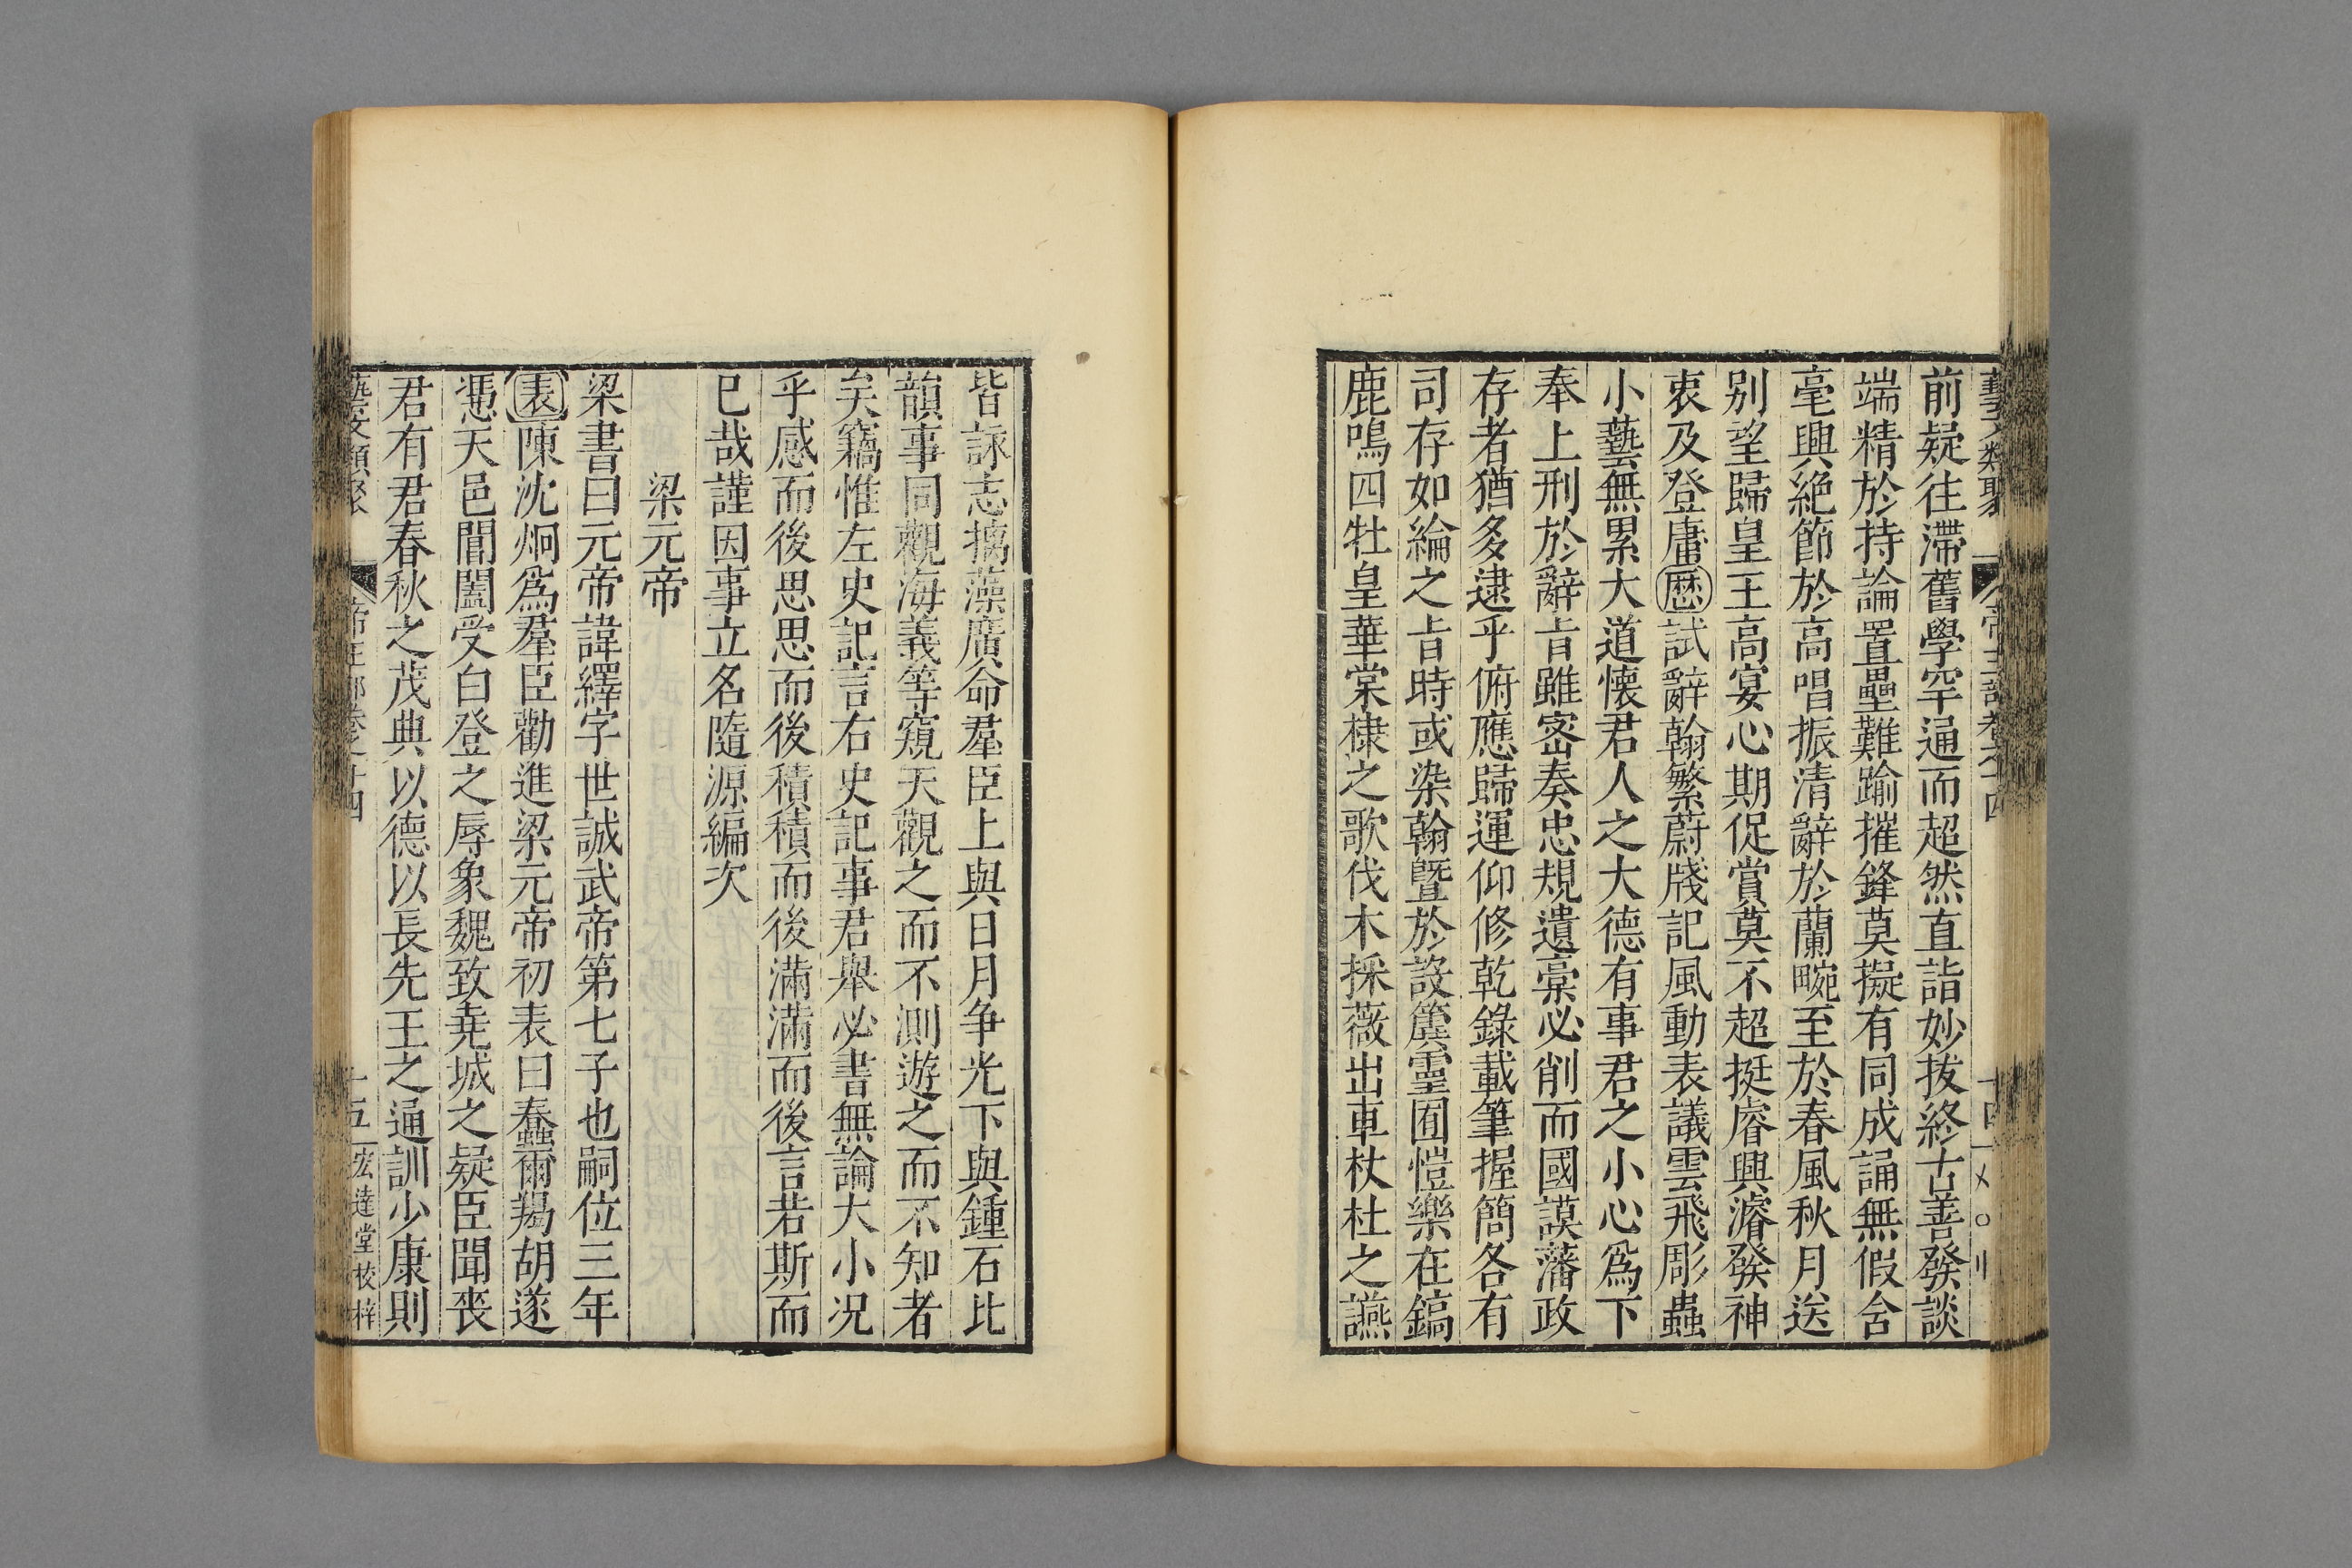 藝文類聚 帝王部卷十四 十四
前疑往滯舊學罕通而超然直詣妙拔終古善發談
端精於持論置壘難踰摧鋒莫擬有同成誦無假含
毫興絶節於高唱振清辭於蘭畹至於春風秋月送
别望歸皇王高宴心期促賞莫不超挺睿興濬發神
衷及登庸歴試辭翰繁蔚牋記風動表議雲飛彫蟲
小藝無累大道懐君人之大德有事君之小心爲下
奉上刑於辭旨雖密奏忠規遺稾必削而國謨藩政
存者猶多逮乎俯應歸運仰修乾錄載筆握簡各有
司存如綸之旨時或染翰暨於設簴靈囿愷樂在鎬
鹿鳴四牡皇華棠棣之歌伐木採薇出車杕杜之讌
皆詠志摛藻廣命羣臣上與日月争光下與鍾石比
韻事同觀海義等窺天觀之而不測遊之而不知者
矣竊惟左史記言右史記事君舉必書無論大小况
乎感而後思思而後積積而後滿滿而後言若斯而
已哉謹因事立名隨源編次
梁元帝
梁書曰元帝諱繹字世誠武帝第七子也嗣位三年
表陳沈炯爲羣臣勸進梁元帝初表曰蠢爾羯胡遂
憑天邑閶闔受白登之辱象魏致堯城之疑臣聞喪
君有君春秋之茂典以德以長先王之通訓少康則
藝文類聚 帝王部卷之十四 十五 宏達堂校梓